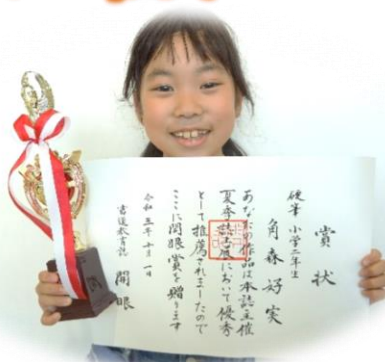 賞状
硬筆 小学二年生
角森 好実
あなたの作品は本誌主催
夏季誌上展において優秀
として推薦されましたので
ここに開眼賞を贈ります
令和五年十月一日
書道教育誌 開眼